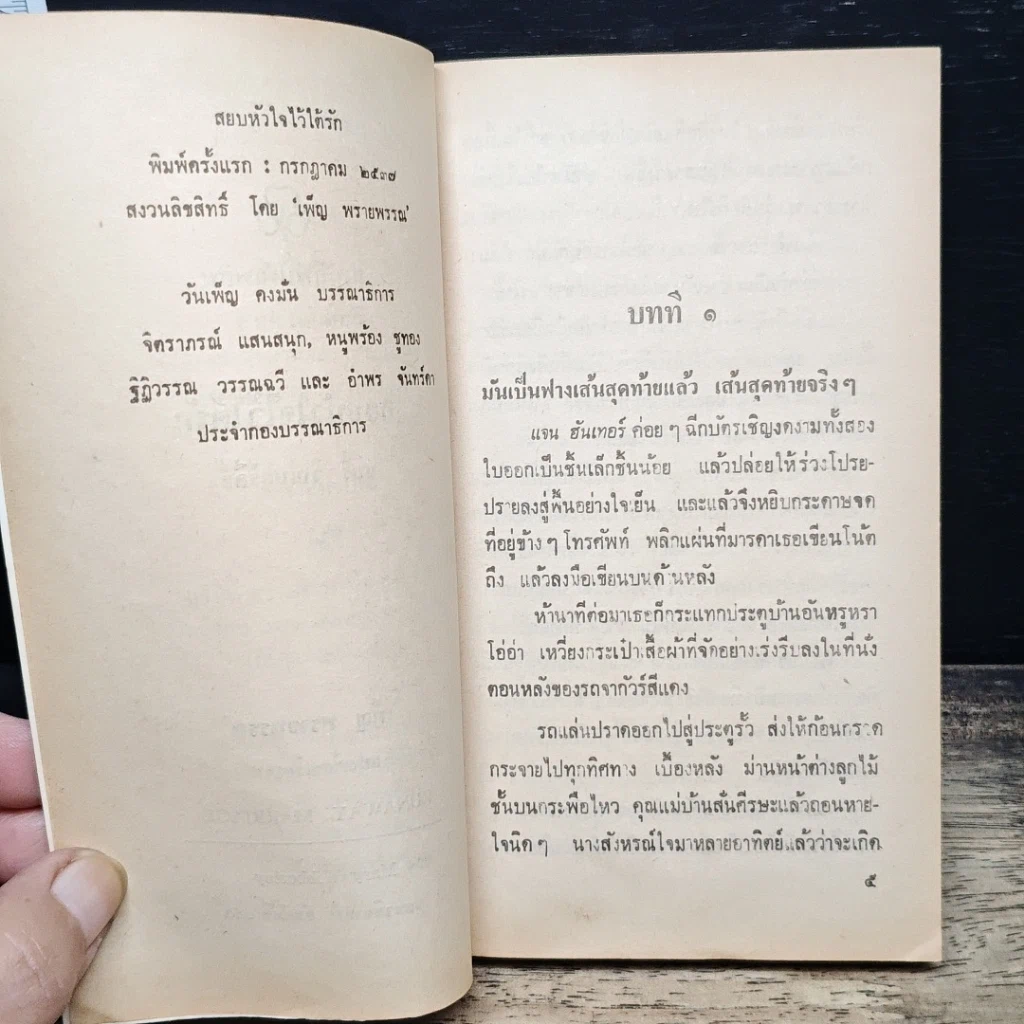 สยบหัวใจไว้ใต้รัก
พิมพ์ครั้งแรก : กรกฎาคม ๒๕๓๗
สงวนลิขสิทธิ์ โดย 'เพ็ญ พรายพรรณ'
วันเพ็ญ คงมั่น บรรณาธิการ
จิตราภรณ์ แสนสนุก, หนูพร้อง ชูทอง
ฐิฏิวรรณ วรรณฉวี และ อำพร จันทร์ดา
ประจำกองบรรณาธิการ
บทที่ ๑
มันเป็นฟางเส้นสุดท้ายแล้ว เส้นสุดท้ายจริง ๆ
แจน ฮันเทอร์ ค่อย ๆ ฉีกบัตรเชิญงดงามทั้งสอง
ใบออกเป็นชิ้นเล็กชิ้นน้อย แล้วปล่อยให้ร่วงโปรย-
ปรายลงสู่พื้นอย่างใจเย็น และแล้วจึงหยิบกระดาษจด
ที่อยู่ข้าง ๆ โทรศัพท์ พลิกแผ่นที่มารดาเธอเขียนโน้ต
ถึง แล้วลงมือเขียนบนด้านหลัง
ห้านาทีต่อมาเธอก็กระแทกประตูบ้านอันหรูหรา
โอ่อ่า เหวี่ยงกระเป๋าเสื้อผ้าที่จัดอย่างเร่งรีบลงในที่นั่ง
ตอนหลังของรถจากัวร์สีแดง
รถแล่นปราดออกไปสู่ประตูรั้ว ส่งให้ก้อนกรวด
กระจายไปทุกทิศทาง เบื้องหลัง ม่านหน้าต่างลูกไม้
ชั้นบนกระพือไหว คุณแม่บ้านสั่นศีรษะแล้วถอนหาย-
ใจนิด ๆ นางสังหรณ์ใจมาหลายอาทิตย์แล้วว่าจะเกิด
๕